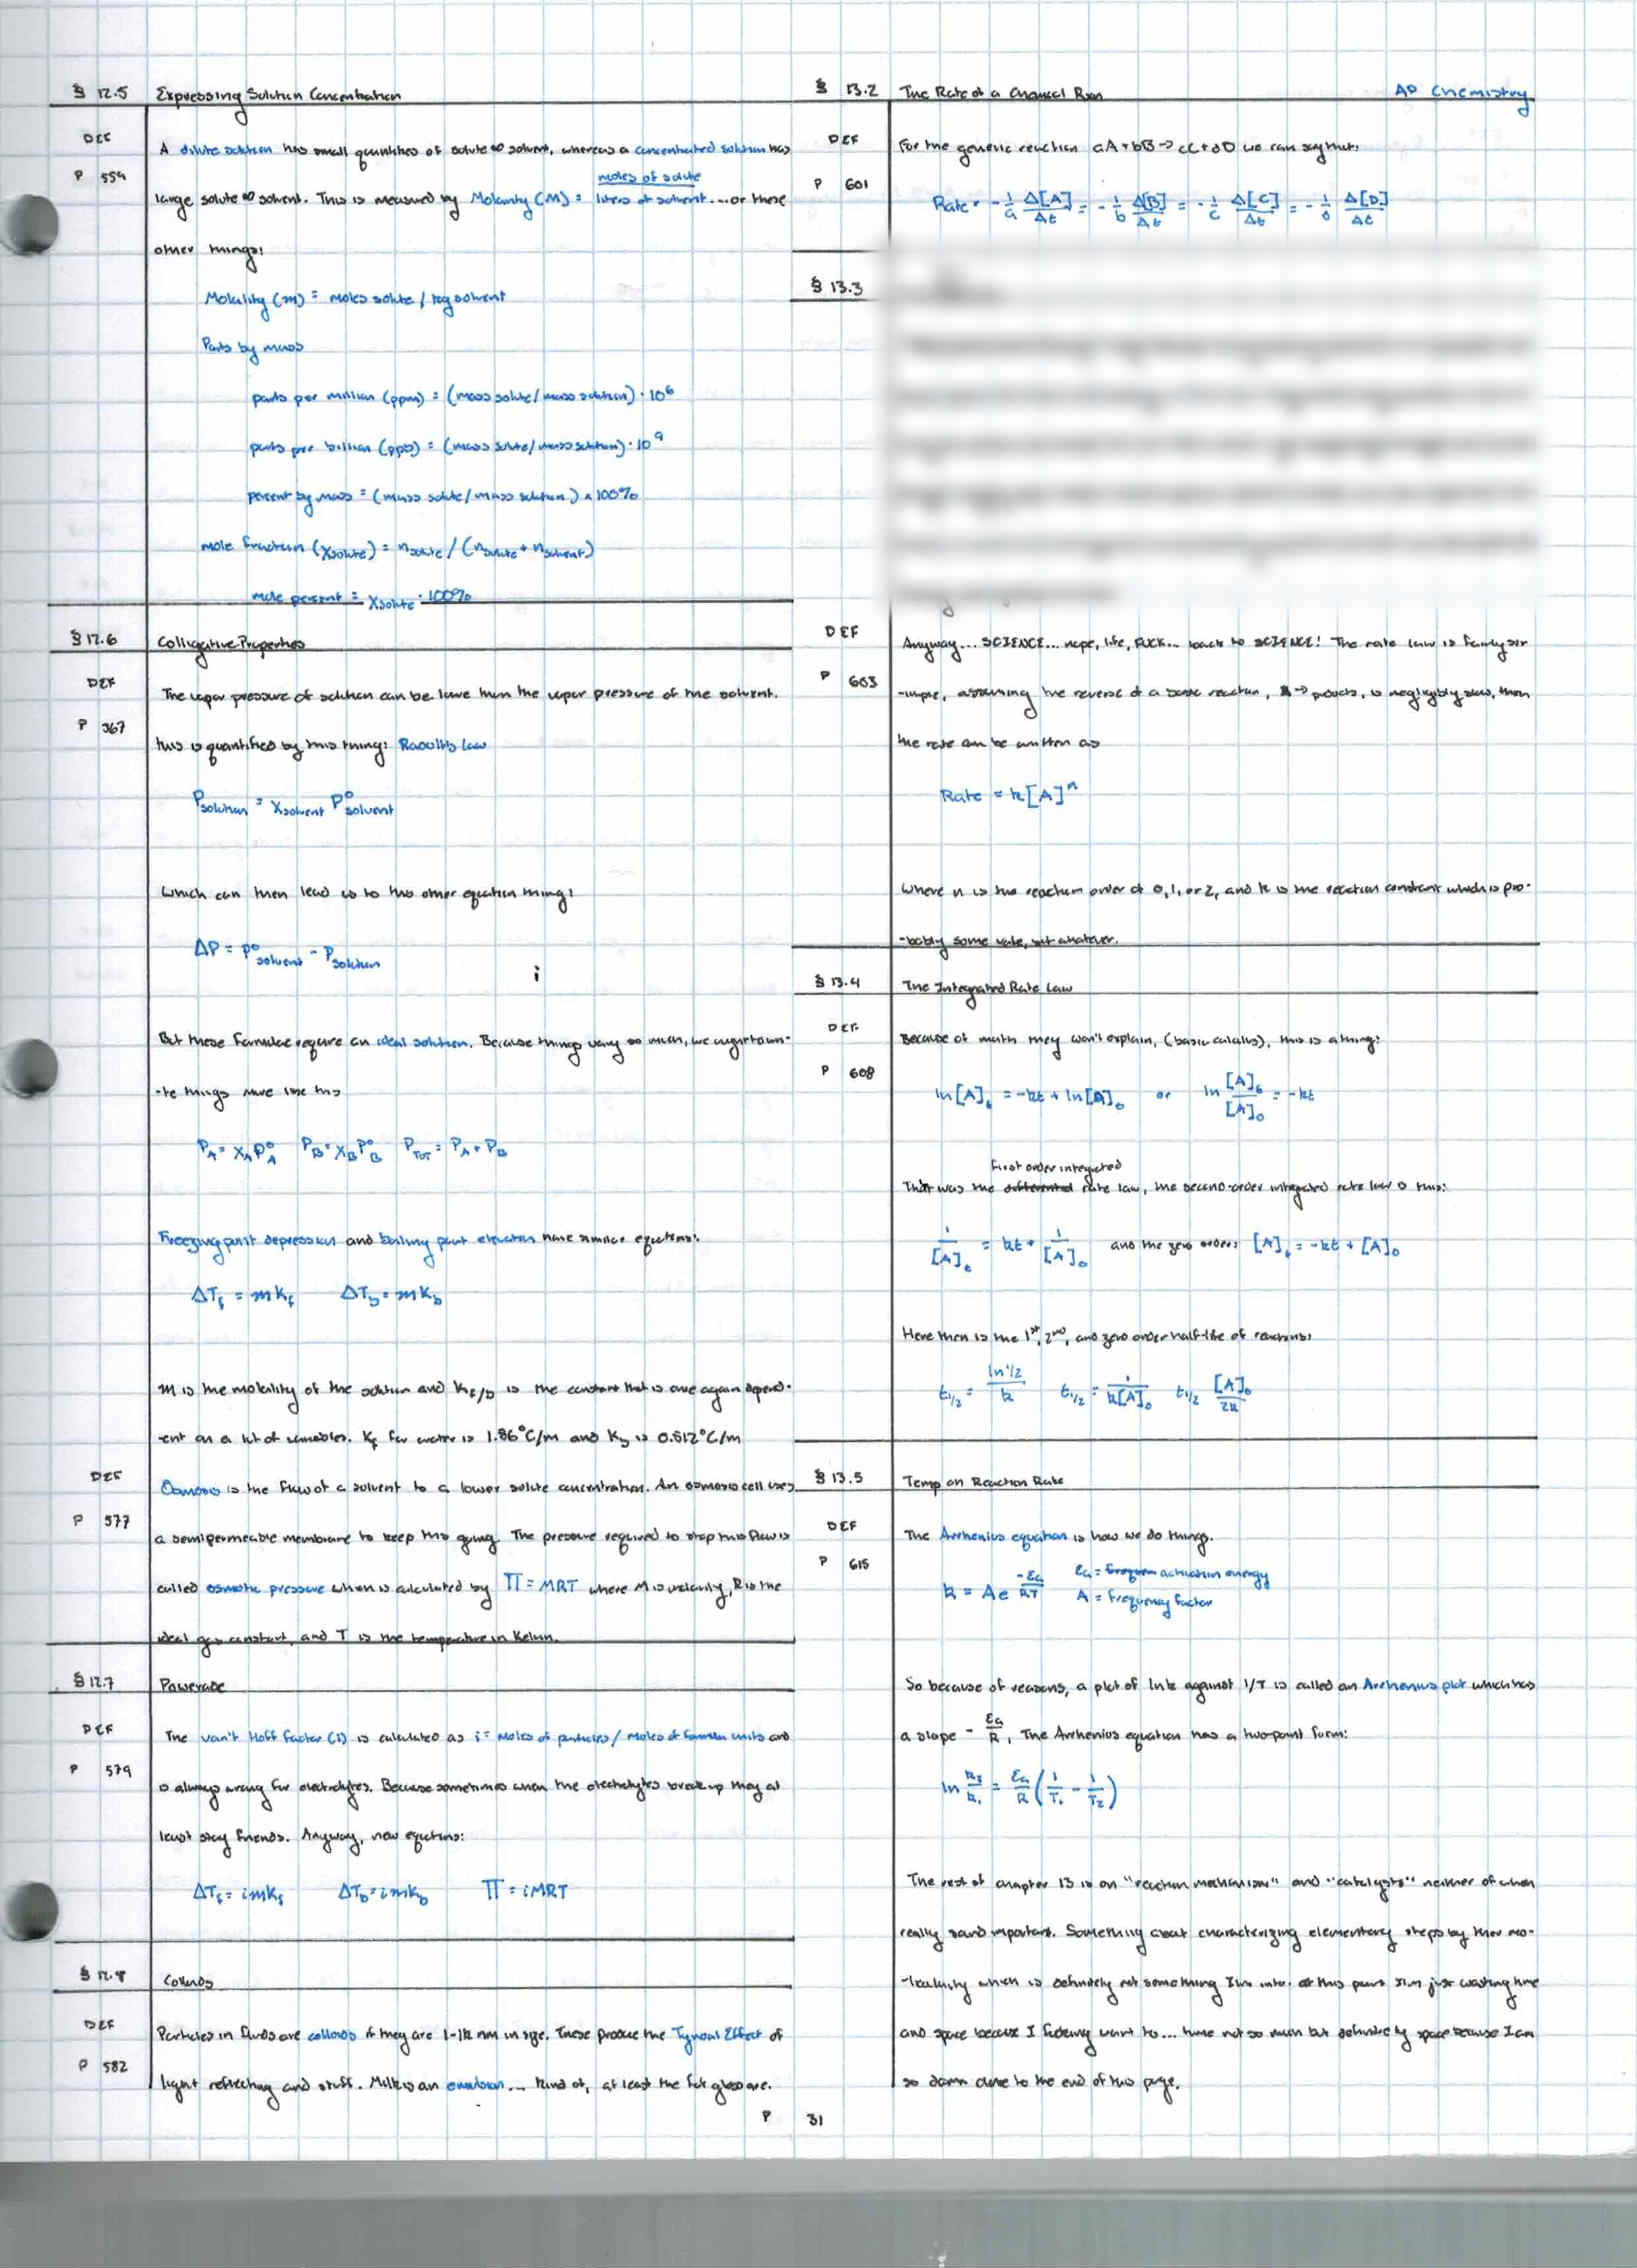 § 12.5 Expressing Solution Concentration
DEF
P 554
A dilute solution has small quantities of solute ∞ solvent, whereas a concentrated solution has
large solute ∞ solvent. This is measured by Molarity (M) = moles of solute / liters of solvent ... or these
other things:
Molality (m) = moles solute / kg solvent
Parts by mass
parts per million (ppm) = (mass solute/mass solution) · 10⁶
parts per billion (ppb) = (mass solute/mass solution) · 10⁹
percent by mass = (mass solute/mass solution) × 100%
mole fraction (χsolute) = nsolute / (nsolute + nsolvent)
mole percent = χsolute · 100%
§ 12.6 Colligative Properties
DEF
P 567
The vapor pressure of solution can be lower than the vapor pressure of the solvent.
this is quantified by this thing: Raoult's law
Psolution = χsolvent P°solvent
Which can then lead us to this other equation thing:
ΔP = P°solvent - Psolution
i
But these formulae require an ideal solution. Because things vary so much, we
-te things more like this
P_A = χ_A P°_A P_B = χ_B P°_B P_TOT = P_A + P_B
Freezing point depression and boiling point elevation have similar equations:
ΔT_f = mK_f ΔT_b = mK_b
m is the molality of the solution and K_f/b is the constant that is once again depend-
-ent on a lot of variables. K_f for water is 1.86°C/m and K_b is 0.512°C/m
DEF
P 577
Osmosis is the flow of a solvent to a lower solute concentration. An osmosis cell uses
a semipermeable membrane to keep this going. The pressure required to stop this flow is
called osmotic pressure when is calculated by Π = MRT where M is molarity, R is the
ideal gas constant, and T is the temperature in Kelvin.
§ 12.7 Powerade
DEF
P 579
The van't Hoff factor (i) is calculated as i = moles of particles / moles of formula units and
is always wrong for electrolytes. Because sometimes when the electrolytes break up they at
least stay friends. Anyway, new equations:
ΔT_f = imK_f ΔT_b = imK_b Π = iMRT
§ 12.8 Colloids
DEF
P 582
Particles in fluids are colloids if they are 1-1k nm in size. These produce the Tyndall Effect of
light reflecting and stuff. Milk is an emulsion... kind of, at least the fat globs are.
§ 13.2 The Rate of a Chemical Rxn AP Chemistry
DEF
P 601
For the generic reaction aA + bB → cC + dD we can say that:
Rate = -1/a Δ[A]/Δt = -1/b Δ[B]/Δt = -1/c Δ[C]/Δt = -1/d Δ[D]/Δt
§ 13.3
DEF
P 603
Anyway... SCIENCE... nope, life, FUCK... back to SCIENCE! The rate law is fairly sim
-mple, assuming the reverse of a basic reaction, A → products, is negligibly slow, then
the rate can be written as
Rate = k[A]ⁿ
Where n is the reaction order of 0, 1, or 2, and k is the reaction constant which is pro-
-bably some value, but whatever.
§ 13.4 The Integrated Rate Law
DEF
P 608
Because of math they won't explain, (basic calculus), this is a thing:
ln[A]_t = -kt + ln[A]_0 or ln [A]_t/[A]_0 = -kt
First order integrated
That was the rate law, the second-order integrated rate law is this:
1/[A]_t = kt + 1/[A]_0 and the zero order: [A]_t = -kt + [A]_0
Here then is the 1st, 2nd, and zero order half-life of reactions:
t_1/2 = ln 1/2 / k t_1/2 = 1/k[A]_0 t_1/2 [A]_0/2k
§ 13.5 Temp on Reaction Rate
DEF
P 615
The Arrhenius equation is how we do things.
k = Ae^(-Ea/RT) Ea = activation energy
A = frequency factor
So because of reasons, a plot of lnk against 1/T is called an Arrhenius plot which has
a slope - Ea/R, The Arrhenius equation has a two-point form:
ln k₂/k₁ = Ea/R (1/T₁ - 1/T₂)
The rest of chapter 13 is on "reaction mechanism" and "catalysts" neither of which
really sound important. Something about characterizing elementary steps by their mo-
-lecularity which is definitely not something I'm into. at this point I'm just wasting time
and space because I fucking want to... time not so much but definitely space because I am
so damn close to the end of this page.
P 31